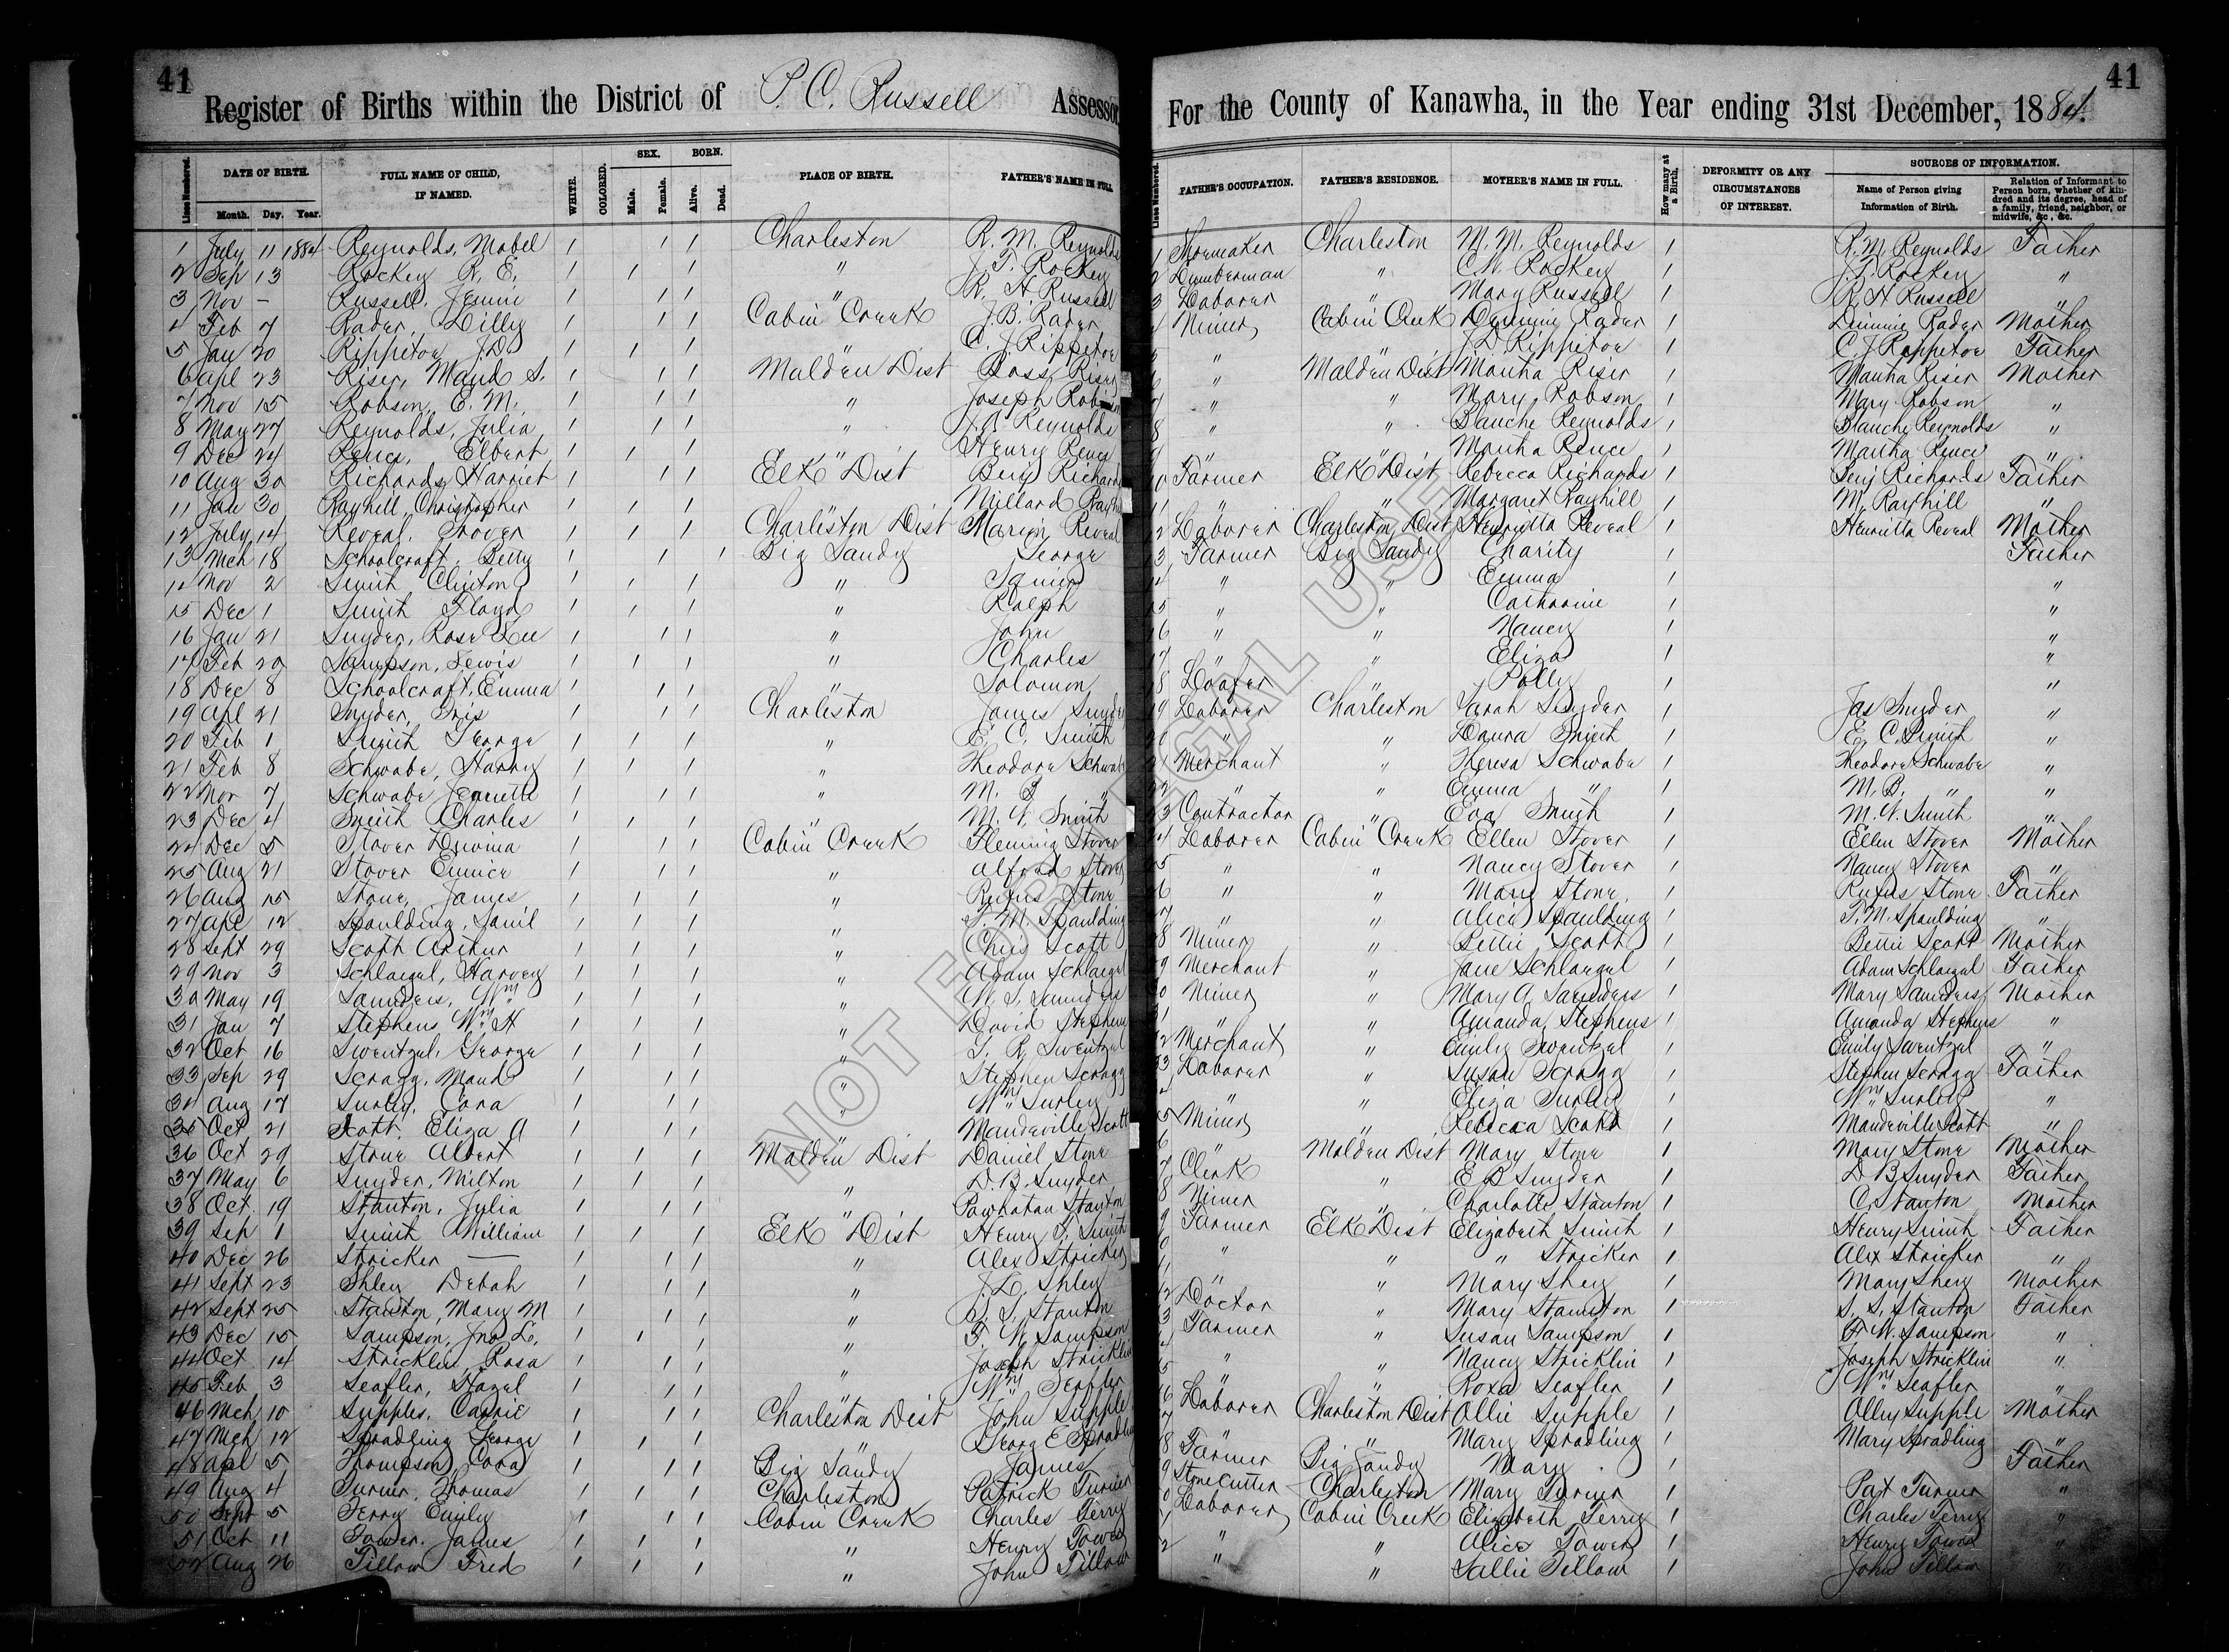 41
Register of Births within the District of P. C. Russell Assessor
For the County of Kanawha, in the Year ending 31st December, 1884.
41
Lines Numbered. DATE OF BIRTH. Month. Day. Year. FULL NAME OF CHILD, IF NAMED. WHITE. COLORED. SEX. Male. Female. BORN. Alive. Dead. PLACE OF BIRTH. FATHER'S NAME IN FULL
Lines Numbered. FATHER'S OCCUPATION. FATHER'S RESIDENCE. MOTHER'S NAME IN FULL. How many at a Birth. DEFORMITY OR ANY CIRCUMSTANCES OF INTEREST. SOURCES OF INFORMATION. Name of Person giving Information of Birth. Relation of Informant to Person born, whether of kindred and its degree, head of a family, friend, neighbor, or midwife, &c., &c.
1 July 11 1884 Reynolds, Mabel 1 1 1 Charleston R. M. Reynolds 1 Shoemaker Charleston M. M. Reynolds 1 R. M. Reynolds Father
2 Sep 13 Rockey R. E. 1 1 1 " J. T. Rockey 2 Lumberman " C. W. Rockey 1 J. T. Rockey "
3 Nov - Russell, Jennie 1 1 1 " R. H Russell 3 Laborer " Mary Russell 1 R H Russell "
4 Feb 7 Rader, Lilly 1 1 1 Cabin Creek J. B. Rader 4 Miner Cabin Creek Rader 1 Rader Mother
5 Jan 20 Rippetoe J. D. 1 1 1 " C. J. Rippetoe " " J. D. Rippetoe 1 C. J. Rippetoe Father
6 Apl 23 Riser, Maud S. 1 1 1 Malden Dist Riser " Malden Dist Martha Riser 1 Martha Riser Mother
7 Nov 15 Robson, E. M. 1 1 1 " Joseph Robson " " Mary Robson 1 Mary Robson "
8 May 27 Reynolds, Julia 1 1 1 " J. A. Reynolds 8 " " Blanche Reynolds 1 Blanche Reynolds "
9 Dec 24 Rence, Elbert 1 1 1 " Henry Rence " " Martha Rence 1 Martha Rence "
10 Aug 30 Richards Harriet 1 1 1 Elk Dist Benj Richards 0 Farmer Elk Dist Rebecca Richards 1 Benj Richards Father
11 Jan 30 Rayhill, Christopher 1 1 1 " Millard Rayhill " " Margaret Rayhill 1 M. Rayhill "
12 July 14 Reveal, Grover 1 1 1 Charleston Dist Marion Reveal 2 Laborer Charleston Dist Henrietta Reveal 1 Henrietta Reveal Mother
13 Mch 18 Schoolcraft, Betty 1 1 1 Big Sandy George 3 Farmer Big Sandy Charity 1 Father
14 Nov 2 Smith Clinton 1 1 1 " 4 " " Emma 1 "
15 Dec 1 Smith Floyd 1 1 1 " Ralph 5 " " Catharine 1 "
16 Jan 21 Snyder, Rosa Lee 1 1 1 " John 6 " " Nancy 1 "
17 Feb 20 Sampson, Lewis 1 1 1 " Charles 7 " " Eliza 1 "
18 Dec 8 Schoolcraft, Emma 1 1 1 " Solomon 8 Loafer " Polly 1 "
19 Apl 21 Snyder, Iris 1 1 1 Charleston James Snyder 9 Laborer Charleston Sarah Snyder 1 Jas Snyder "
20 Feb 1 Smith George 1 1 1 " E. C. Smith 0 " " Laura Smith 1 E. C. Smith "
21 Feb 8 Schwabe, Harry 1 1 1 " Theodore Schwabe 21 Merchant " Theresa Schwabe 1 Theodore Schwabe "
22 Nov 7 Schwabe Jeanette 1 1 1 " M. B " " " Emma " 1 M. B. " "
23 Dec 4 Smith Charles 1 1 1 " M. W. Smith 3 Contractor " Eva Smith 1 M. W. Smith "
24 Dec 5 Stover 1 1 1 Cabin Creek Fleming Stover 4 Laborer Cabin Creek Ellen Stover 1 Ellen Stover Mother
25 Aug 21 Stover Eunice 1 1 1 " Alford Stover 5 " " Nancy Stover 1 Nancy Stover "
26 Aug 15 Stone, James 1 1 1 " Rufus Stone 6 " " Mary Stone 1 Rufus Stone Father
27 Apl 12 Spaulding, 1 1 1 " T. M. Spaulding 7 " " Alice Spaulding 1 T. M. Spaulding "
28 Sept 29 Scott Arthur 1 1 1 " Chris Scott 8 Miner " Bettie Scott 1 Bettie Scott Mother
29 Nov 3 Schlaegel, Harvey 1 1 1 " Adam Schlaegel 9 Merchant " Jane Schlaegel 1 Adam Schlaegel Father
30 May 19 Saunders, Wm 1 1 1 " W. S. Saunders 0 Miner " Mary A. Saunders 1 Mary Saunders Mother
31 Jan 7 Stephens Wm H 1 1 1 " David Stephens 1 " " Amanda Stephens 1 Amanda Stephens "
32 Oct 16 Swentzel, George 1 1 1 " Swentzel 2 Merchant " Emily Swentzel 1 Emily Swentzel "
33 Sep 29 Scragg, Maud 1 1 1 " Stephen Scragg 3 Laborer " Susan Scragg 1 Stephen Scragg Father
34 Aug 17 Surley, Cora 1 1 1 " Wm Surley " " Eliza Surley 1 Wm Surley "
35 Oct 21 Scott, Eliza A 1 1 1 " Mandeville Scott 5 Miner " Rebecca Scott 1 Mandeville Scott "
36 Oct 29 Stone Albert 1 1 1 Malden Dist Daniel Stone 6 " Malden Dist Mary Stone 1 Mary Stone Mother
37 May 6 Snyder, Milton 1 1 1 " D. B. Snyder 7 Clerk " E B Snyder 1 D B Snyder Father
38 Oct 19 Stanton, Julia 1 1 1 " Powhatan Stanton 8 Miner " Charlotte Stanton 1 C. Stanton Mother
39 Sep 1 Smith William 1 1 1 Elk Dist Henry T. Smith 9 Farmer Elk Dist Elizabeth Smith 1 Henry Smith Father
40 Dec 26 Stricker — 1 1 1 " Alex Stricker 0 " " " Stricker 1 Alex Stricker "
41 Sept 23 Shley Debah 1 1 1 " J. L. Shley 1 " " Mary Shey 1 Mary Shey Mother
42 Sept 25 Stanton, Mary M 1 1 1 " S. S. Stanton 2 Doctor " Mary Stanton 1 S. S. Stanton Father
43 Dec 15 Sampson, Jno L. 1 1 1 " F. W. Sampson 3 Farmer " Susan Sampson 1 F. W. Sampson "
44 Oct 14 Stricklin, Rosa 1 1 1 " Joseph Stricklin " " Nancy Stricklin 1 Joseph Stricklin "
45 Feb 3 Seafler, Hazel 1 1 1 " Wm Seafler 5 " " Roxa Seafler 1 Wm Seafler "
46 Mch 10 Supples, Carrie 1 1 1 Charleston Dist John Supple 6 Laborer Charleston Dist Ollie Supple 1 Olley Supple Mother
47 Mch 12 Spradling George 1 1 1 " George E Spradling 7 " " Mary Spradling 1 Mary Spradling "
48 Apl 5 Thompson Cora 1 1 1 Big Sandy James 8 Farmer Big Sandy Mary 1 Father
49 Aug 4 Turner, Thomas 1 1 1 Charleston Patrick Turner 9 Stone Cutter Charleston Mary Turner 1 Pat Turner "
50 Sept 5 Terry Emily 1 1 1 Cabin Creek Charles Terry 0 Laborer Cabin Creek Elizabeth Terry 1 Charles Terry "
51 Oct 11 Tower, James 1 1 1 " Henry Tower " " Alice Tower 1 Henry Tower "
52 Aug 26 Tillow Fred 1 1 1 " John Tillow 2 " " Sallie Tillow 1 John Tillow "
NOT FOR LEGAL USE